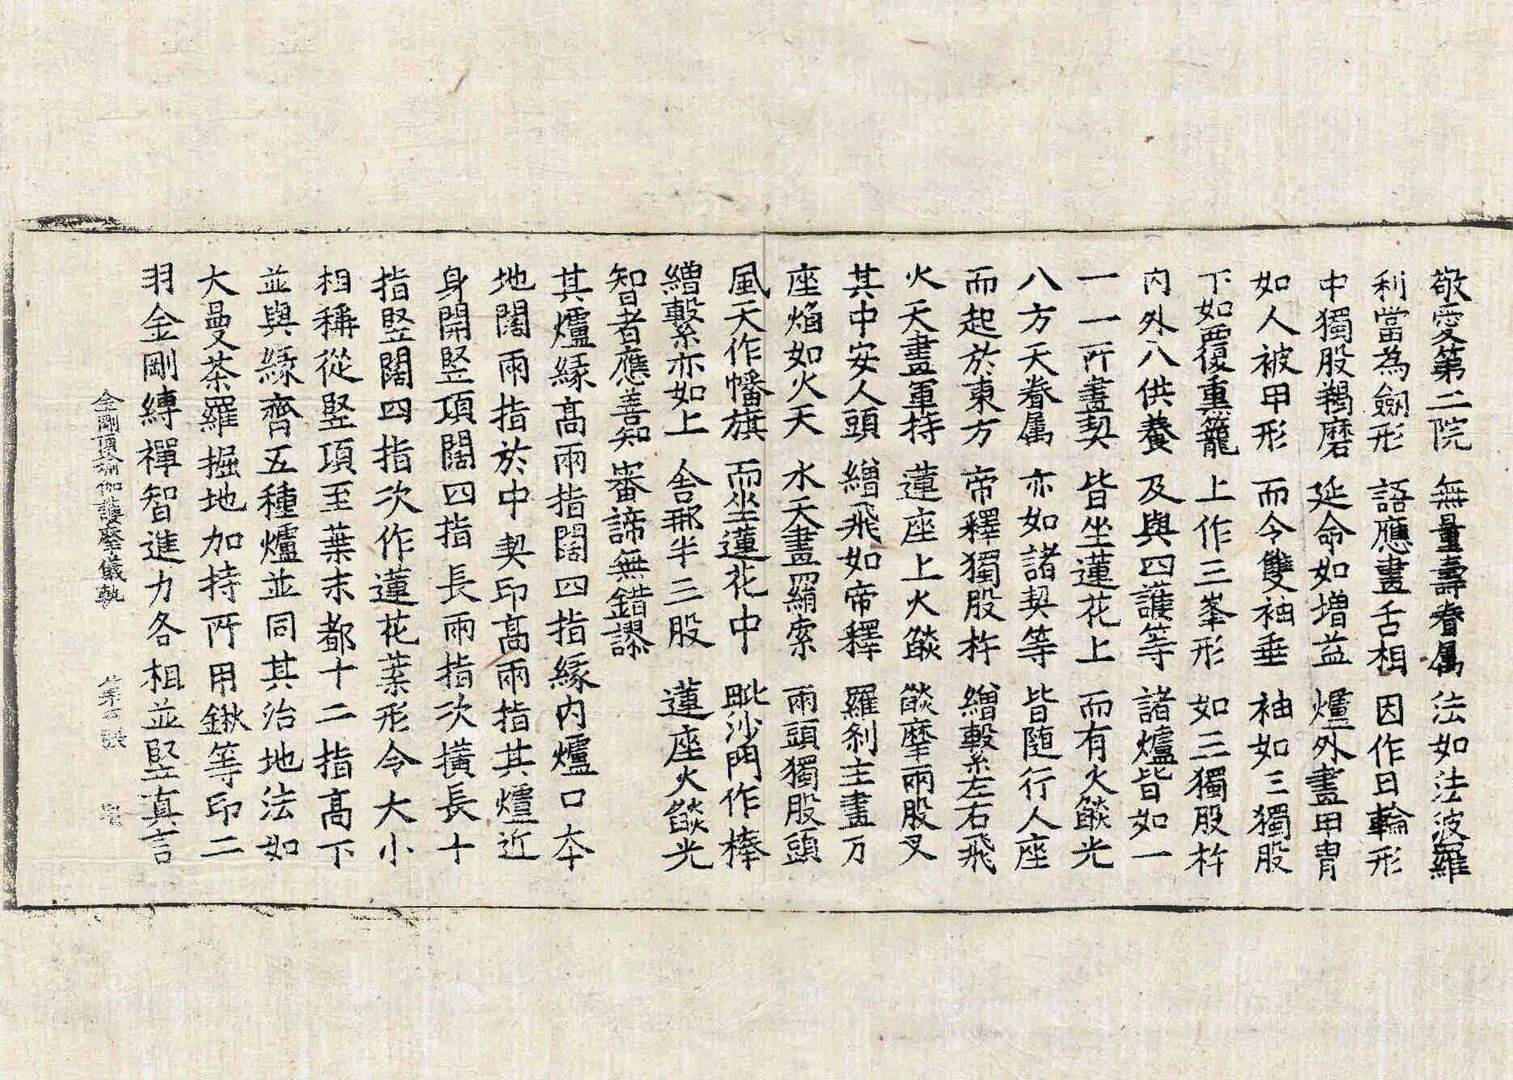 敬愛第二院　無量壽眷属　法如法波羅
利當為劒形　語應畫舌相　因作日輪形
中獨股羯磨　延命如增益　爐外畫甲胄
如人被甲形　而令雙袖垂　袖如三獨股
下如覆重籠　上作三峯形　如三獨股杵
内外八供養　及與四護等　諸爐皆如一
一一所畫契　皆坐蓮花上　而有火燄光
八方天眷属　亦如諸契等　皆随行人座
而起於東方　帝釋獨股杵　繒繫左右飛
火天畫軍持　蓮座上火燄　燄摩兩股叉
其中安人頭　繒飛如帝釋　羅刹主畫刀
座焰如火天　水天畫羂索　兩頭獨股頭
風天作幡旗　而坐蓮花中　毗沙門作棒
繒繫亦如上　舍那半三股　蓮座火燄光
智者應善知　審諦無錯謬
其爐緣高兩指闊四指緣内爐口夲
地闊兩指於中契印高兩指其爐近
身開竪項闊四指長兩指次橫長十
指竪闊四指次作蓮花葉形令大小
相稱從竪項至葉末都十二指高下
並與緣齊五種爐並同其治地法如
大曼荼羅掘地加持所用鍬等印二
羽金剛縛禪智進力各相並竪真言
金剛頂瑜伽護摩儀軌　第二張